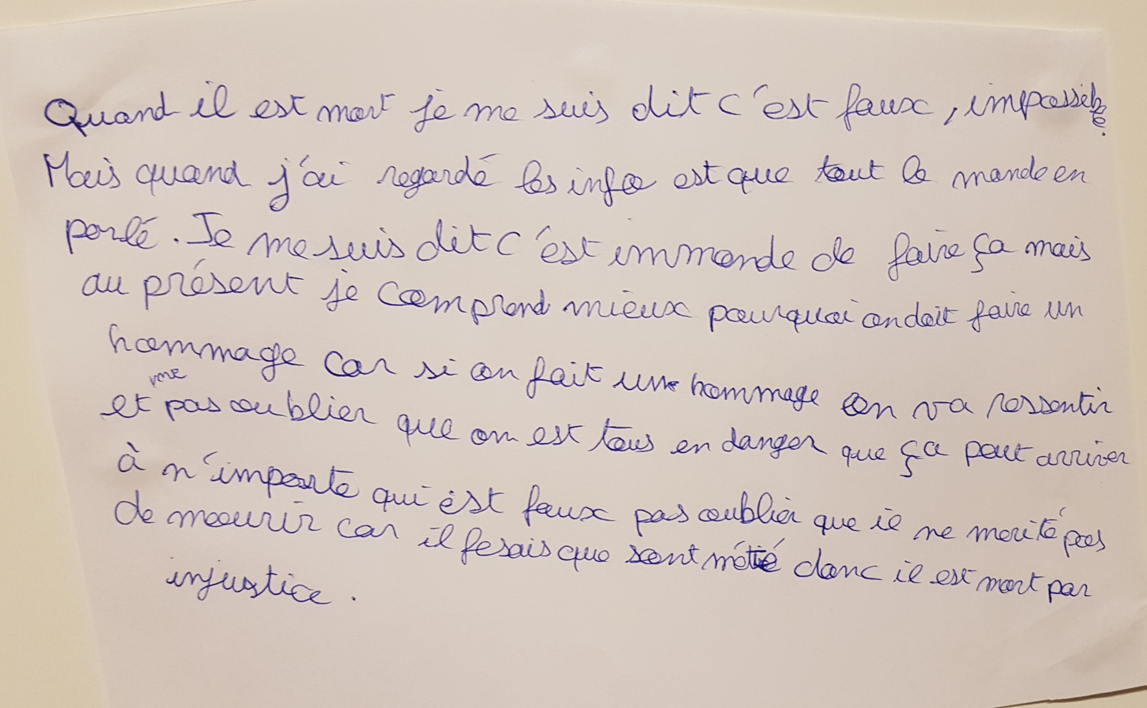 Quand il est mort je me suis dit c'est faux, impossible.
Mais quand j'ai regardé les infos est que tout le monde en
parlé. Je me suis dit c'est immonde de faire ça mais
au présent je comprend mieux pourquoi on doit faire un
hommage car si on fait une hommage on va ressentir
et ne pas oublier que on est tous en danger que ça peut arriver
à n'importe qui est faux pas oublier que il ne merité pas
de mourir car il fesais que sont métié donc il est mort par
injustice.